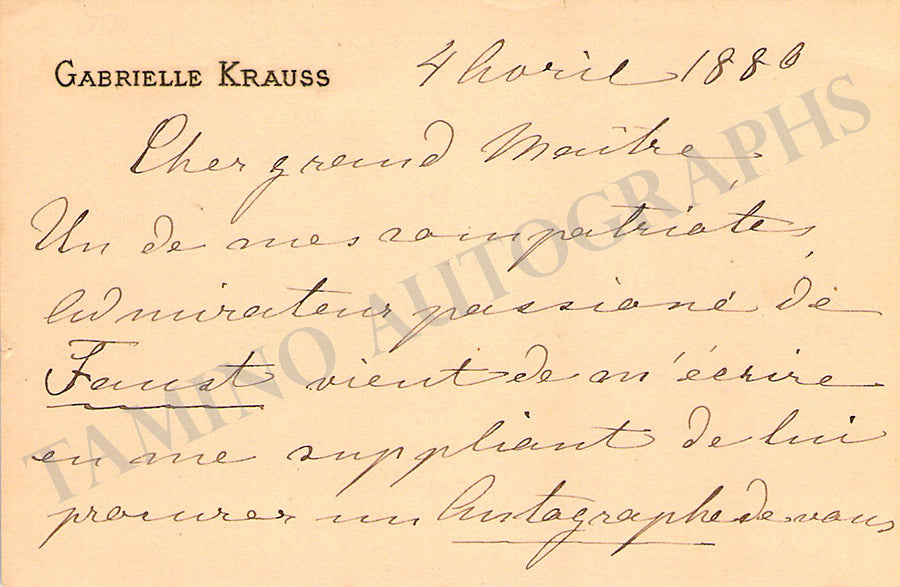 GABRIELLE KRAUSS
4 Avril 1880
Cher grand Maître
Un de mes compatriotes,
Admirateur passioné de
Faust vient de m'écrire
en me suppliant de lui
procurer un Autographe de vous
TAMINO AUTOGRAPHS